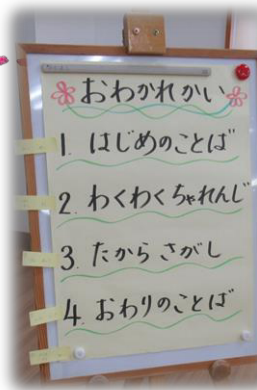 おわかれかい
1. はじめのことば
2. わくわくちゃれんじ
3. たからさがし
4. おわりのことば